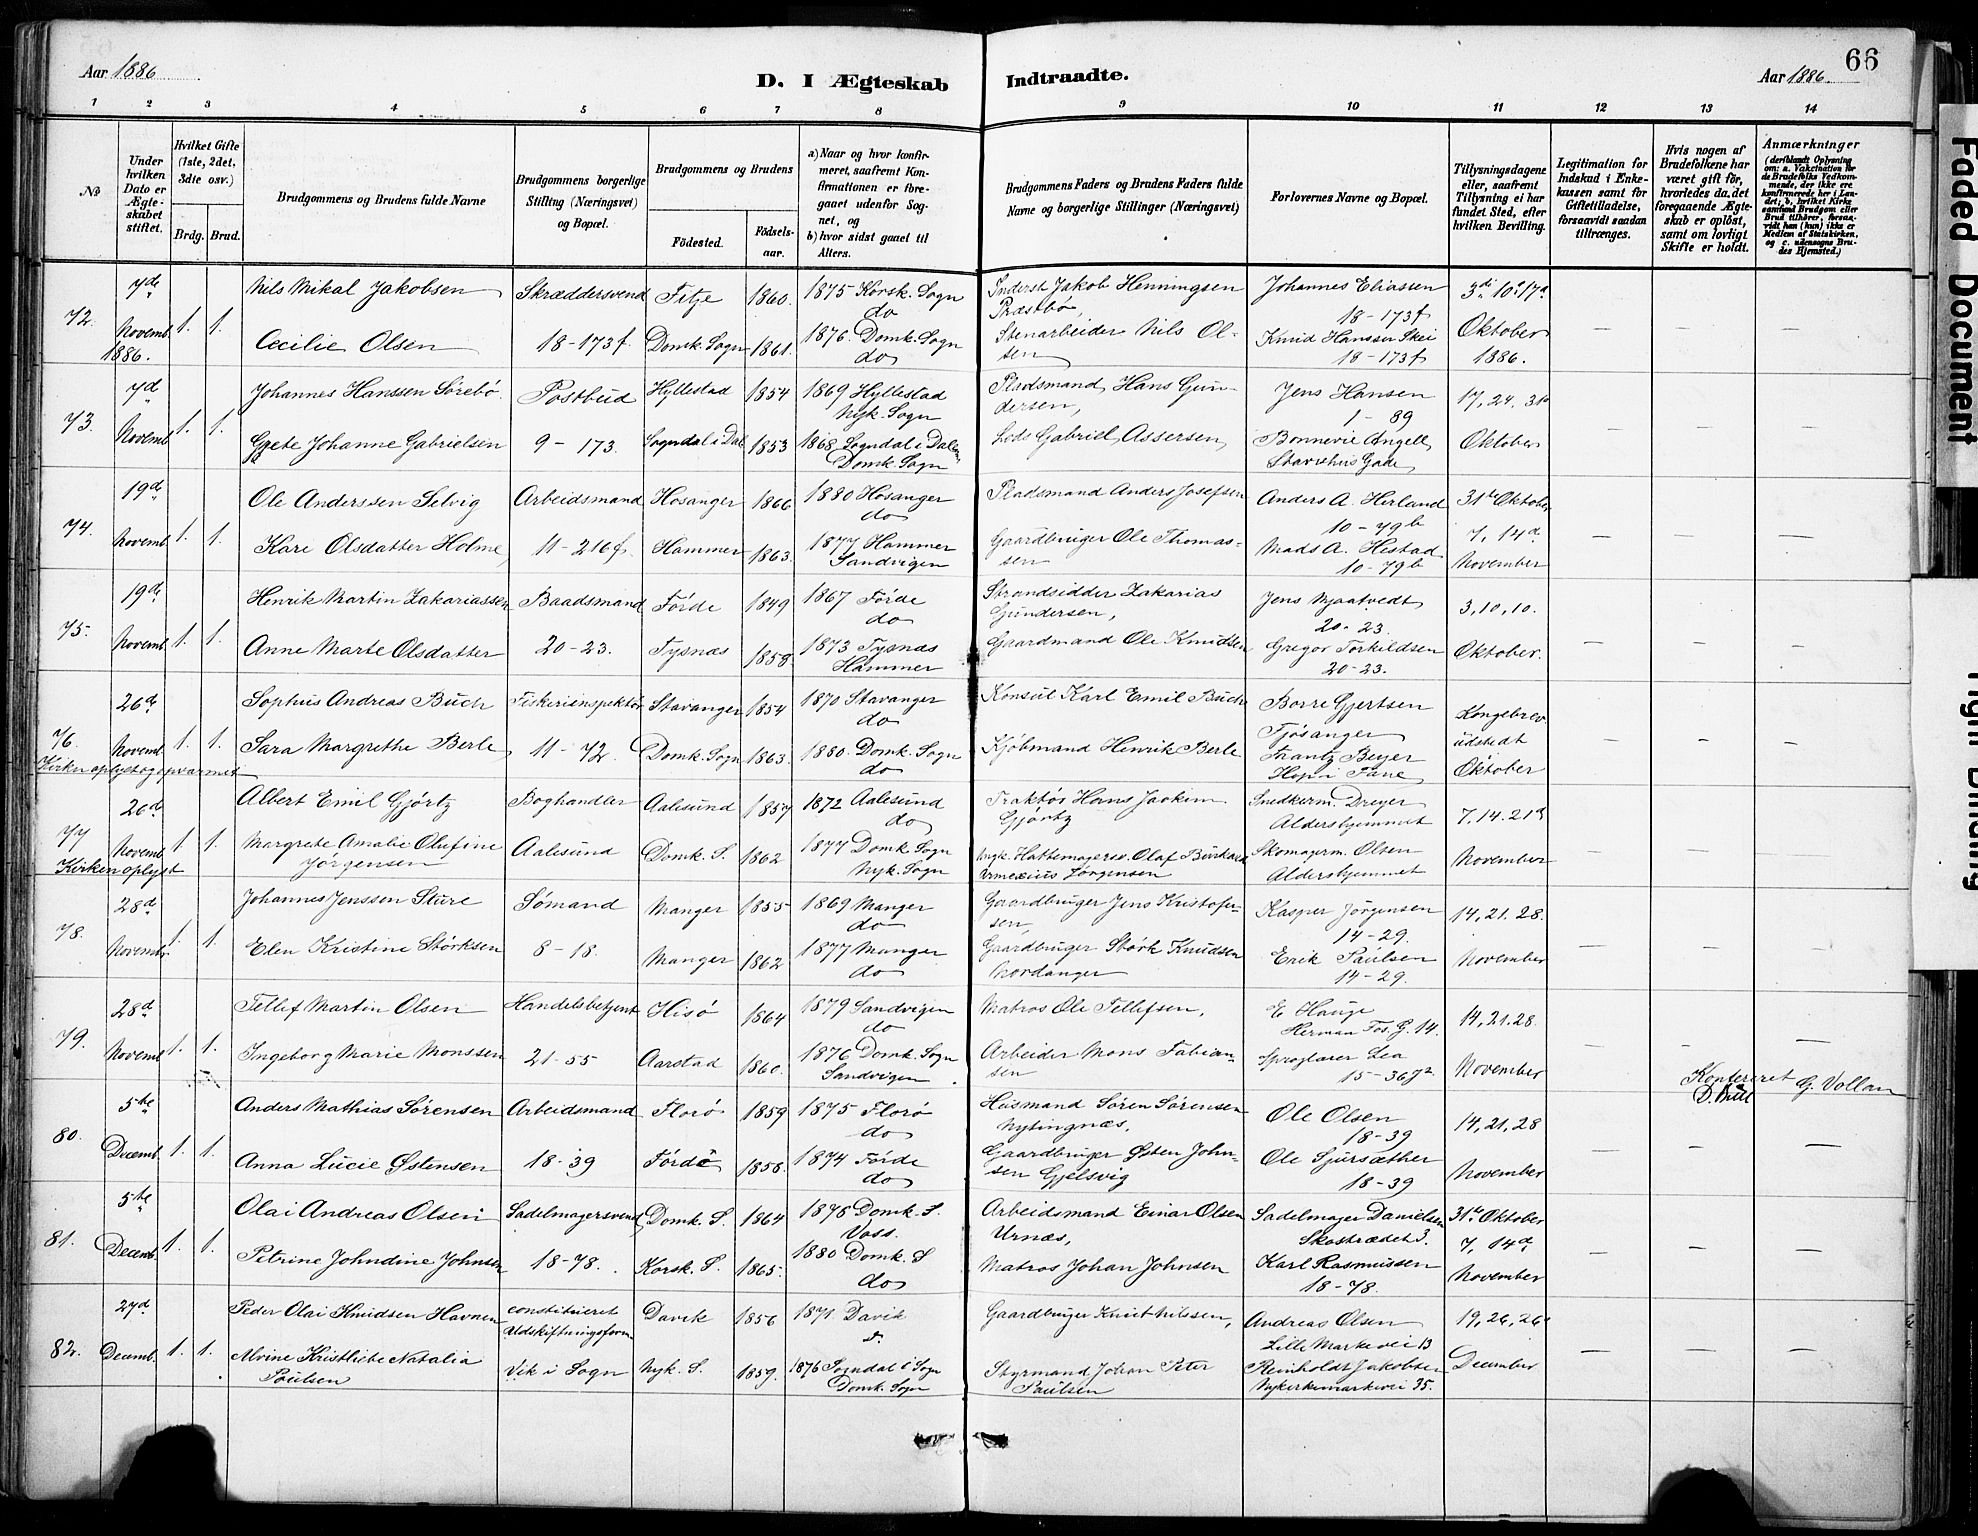 66
Aar 1886
D. I Ægteskab Indtraadte.
Aar 1886.
1 2 3 4 5 6 7 8 9 10 11 12 13 14
№
Under hvilken Dato er Ægteskabet stiftet.
Hvilket Gifte (1ste, 2det, 3die osv.)
Brdg. Brud.
Brudgommens og Brudens fulde Navne
Brudgommens borgerlige Stilling (Næringsvei) og Bopæl.
Brudgommens og Brudens
Fødested. Fødselsaar.
a) Naar og hvor konfirmeret, saafremt Konfirmationen er foregaaet udenfor Sognet, og
b) hvor sidst gaaet til Alters.
Brudgommens Faders og Brudens Faders fulde Navne og borgerlige Stillinger (Næringsvei)
Forlovernes Navne og Bopæl.
Tillysningsdagene eller, saafremt Tillysning ei har fundet Sted, efter hvilken Bevilling.
Legitimation for Indskud i Enkekassen samt for Giftetilladelse, forsaavidt saadan tiltrænges.
Hvis nogen af Brudefolkene har været gift før, hvorledes da det foregaaende Ægteskab er opløst, samt om lovligt Skifte er holdt.
Anmærkninger (deriblandt Oplysning om: a. Vakcination for de Brudefolks Vedkommende, der ikke ere konfirmerede her i Landet; b. hvilket Kirkesamfund Brudgom eller Brud tilhører, forsaavidt han (hun) ikke er Medlem af Statskirken, og c. udensogns Brudes Hjemsted.)
72. 7de Novemb. 1886. 1. 1.
Nils Mikal Jakobsen Skræddersvend Fitje 1860. 1875 Korsk. Sogn do Inderst Jakob Henningsen Præstbø, Johannes Eliassen 18-173f 3di 10. 17d
Cecilie Olsen 18-173f. Domk. Sogn 1861. 1876. Domk. Sogn do Stenarbeider Nils Olsen Knud Hanssen Skei 18-173f Oktober 1886.
73. 7de Novemb. 1. 1.
Johannes Hanssen Sørebø. Postbud Hyllestad 1854 1869 Hyllestad Nyk. Sogn Pladsmand Hans Gundersen, Jens Hansen 1-89 17, 24. 31
Grete Johanne Gabrielsen 9-173. Sogndal i Dal 1853 1868 Sogndal i Dalen Domk. Sogn Lods Gabriel Assersen, Bonnevie Angell Starvhus Gade Oktober
74. 19de Novemb. 1. 1.
Ole Anderssen Selvig Arbeidsmand Hosanger 1866 1880 Hosanger do Pladsmand Anders Josefsen Anders A. Herland 10-79b 31te Oktober
Kari Olsdatter Holme, 11-216f. Hammer 1863. 1877 Hammer Sandvigen Gaardbruger Ole Thomassen Mads A. Hestad 10-79b 7, 14d November
75. 19de Novemb. 1. 1.
Henrik Martin Zakariassen Baadsmand Førde 1849 1867 Førde do Strandsidder Zakarias Gundersen, Jens Mjaatvedt 20-23. 3, 10, 10.
Anne Marte Olsdatter 20-23. Tysnæs 1858. 1873 Tysnæs Hammer Gaardmand Ole Knudsen Gregor Torkildsen 20-23. Oktober.
76. 26d Novemb. 1. 1.
Sophus Andreas Buch Fiskeriinspektør Stavanger 1854 1870 Stavanger do Konsul Karl Emil Buch Borre Gjertsen Fjøsanger Kongebrev udstedt
Sara Margrethe Berle, 11-72. Domk. Sogn 1863. 1880. Domk. Sogn do Kjøbmand Henrik Berle Frantz Beyer Hop i Fane Oktober
Kirken oplyst og opvarmet
77 26d Novemb. 1 1
Albert Emil Gjørtz Boghandler Aalesund 1857 1872 Aalesund do Traktør Hans Joakim Gjørtz Snedkerm. Dreyer Aldershjemmet 7. 14. 21d
Margrete Amalie Olufine Jørgensen Aalesund Domk. S. 1862 1877 Domk Sogn Nyk. Sogn Hattemagersv. Olaf Jørgensen Skomagerm. Olsen Aldershjemmet November
Kirken oplyst
78. 28d Novemb. 1. 1.
Johannes Jenssen Sture Sømand Manger 1855 1869 Manger do Gaardbruger Jens Kristofersen, Kasper Jörgensen 14-29. 14, 21. 28.
Elen Kristine Størksen 8-18. Manger 1862 1877 Manger do Gaardbruger Størk Knudsen Nordanger Erik Paulsen 14-29. November
79. 28d Novemb. 1. 1.
Tellef Martin Olsen Handelsbetjent Hisø 1864 1879 Sandvigen do Matros Ole Tellefsen, E. Hauge Herman Fos. G. 14. 14, 21. 28.
Ingeborg Marie Monssen 21-55 Aarstad 1860. 1876 Domk. Sogn Sandvigen Arbeider Mons Fabiansen Sproglærer Lea 15-367a November
Konfereret G. Vollan
D. Bull
80. 5te Decemb. 1. 1.
Anders Mathias Sørensen Arbeidsmand Florø 1859 1875 Florø do Husmand Søren Sørensen Nytingnæs. Ole Olsen 18-39 14, 21, 28
Anna Lucie Østensen 18-39 Førde 1856. 1874 Førde do Gaardbruger Østen Johnsen Gjelsvig Ole Sjursæther 18-39 November
81. 5te Decemb. 1. 1.
Olai Andreas Olsen Sadelmagersvend Domk. S. 1864 1878 Domk. S. Voss. Arbeidsmand Einar Olsen Urnæs, Sadelmager Danielsen Skostrædet 3. 31te Oktober
Petrine Johndine Johnsen 18-78. Korsk. S. 1865. 1880 Domk. S do Matros Johan Johnsen Karl Rasmussen 18-78. 7, 14d November
82. 27d Decemb. 1. 1.
Peder Olai Knudsen Havnen constitueret Udskiftningsform. Davik 1856 1871 Davik d. Gaardbruger Knut Nilssen, Andreas Olsen Lille Markevei 13 19, 26, 26
Alvine Kristliebe Natalia Poulsen Vik i Sogn Nyk. S. 1859. 1876 Sogndal i Sogn Domk. Sogn Styrmand Johan Peter Paulsen Reinholdt Jakobsen Nykirkemarkevei 35. December
Faded Document
Tight Binding